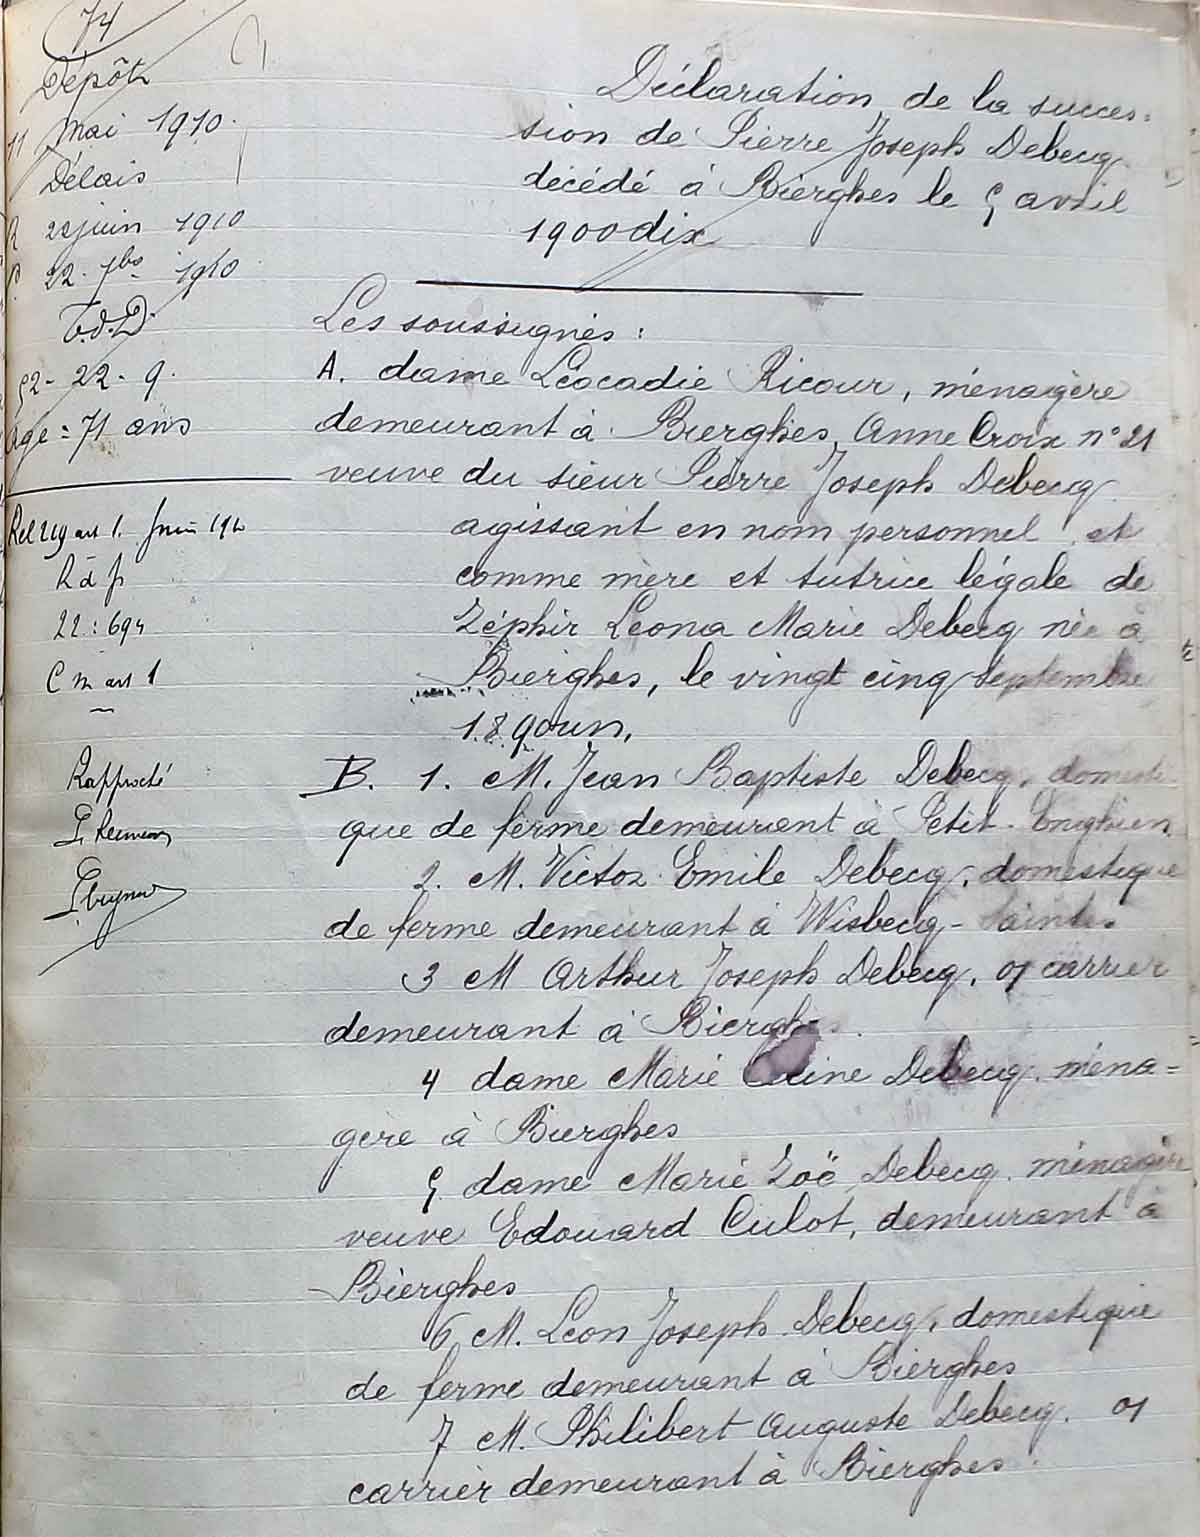 74
Dépôt
11 Mai 1910.
Délais
R 22 juin 1910
P. 22. 7bre 1910
T.d.D.
52 - 22 - 9.
Age = 71 ans
Rel 219 art 1.
R à p
22 : 694
C art 1
Rapproché
Déclaration de la succes-
sion de Pierre Joseph Debecq
décédé à Bierghes le 5 avril
1900 dix
Les soussignés :
A. dame Léocadie Ricour, ménagère
demeurant à Bierghes, Anne Croix n° 21
veuve du sieur Pierre Joseph Debecq
agissant en nom personnel et
comme mère et tutrice légale de
Zéphir Leona Marie Debecq née à
Bierghes, le vingt cinq septembre
1890un.
B. 1. M. Jean Baptiste Debecq, domesti-
que de ferme demeurant à Petit-Enghien
2. M. Victor Emile Debecq, domestique
de ferme demeurant à Wisbecq-Saintes
3 M Arthur Joseph Debecq, or carrier
demeurant à Bierghes.
4 dame Marie Debecq, ména=
gère à Bierghes
5 dame Marie Zoë Debecq ménagère
veuve Edouard Culot, demeurant à
Bierghes
6 M. Léon Joseph Debecq, domestique
de ferme demeurant à Bierghes
7 M. Philibert Auguste Debecq, or
carrier demeurant à Bierghes.